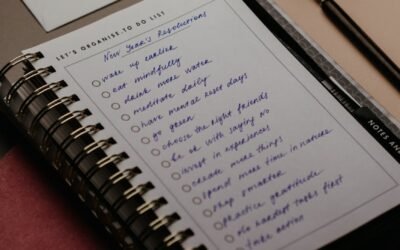 LET'S ORGANISE - TO DO LIST
New Year's Resolutions
wake up earlier
eat mindfully
drink more water
meditate daily
have mental reset days
go green
choose the right friends
be ok with saying no
invest in experiences
create more things
spend more time in nature
shop smarter
practice gratitude
do hardest tasks first
take action
NOTES AN